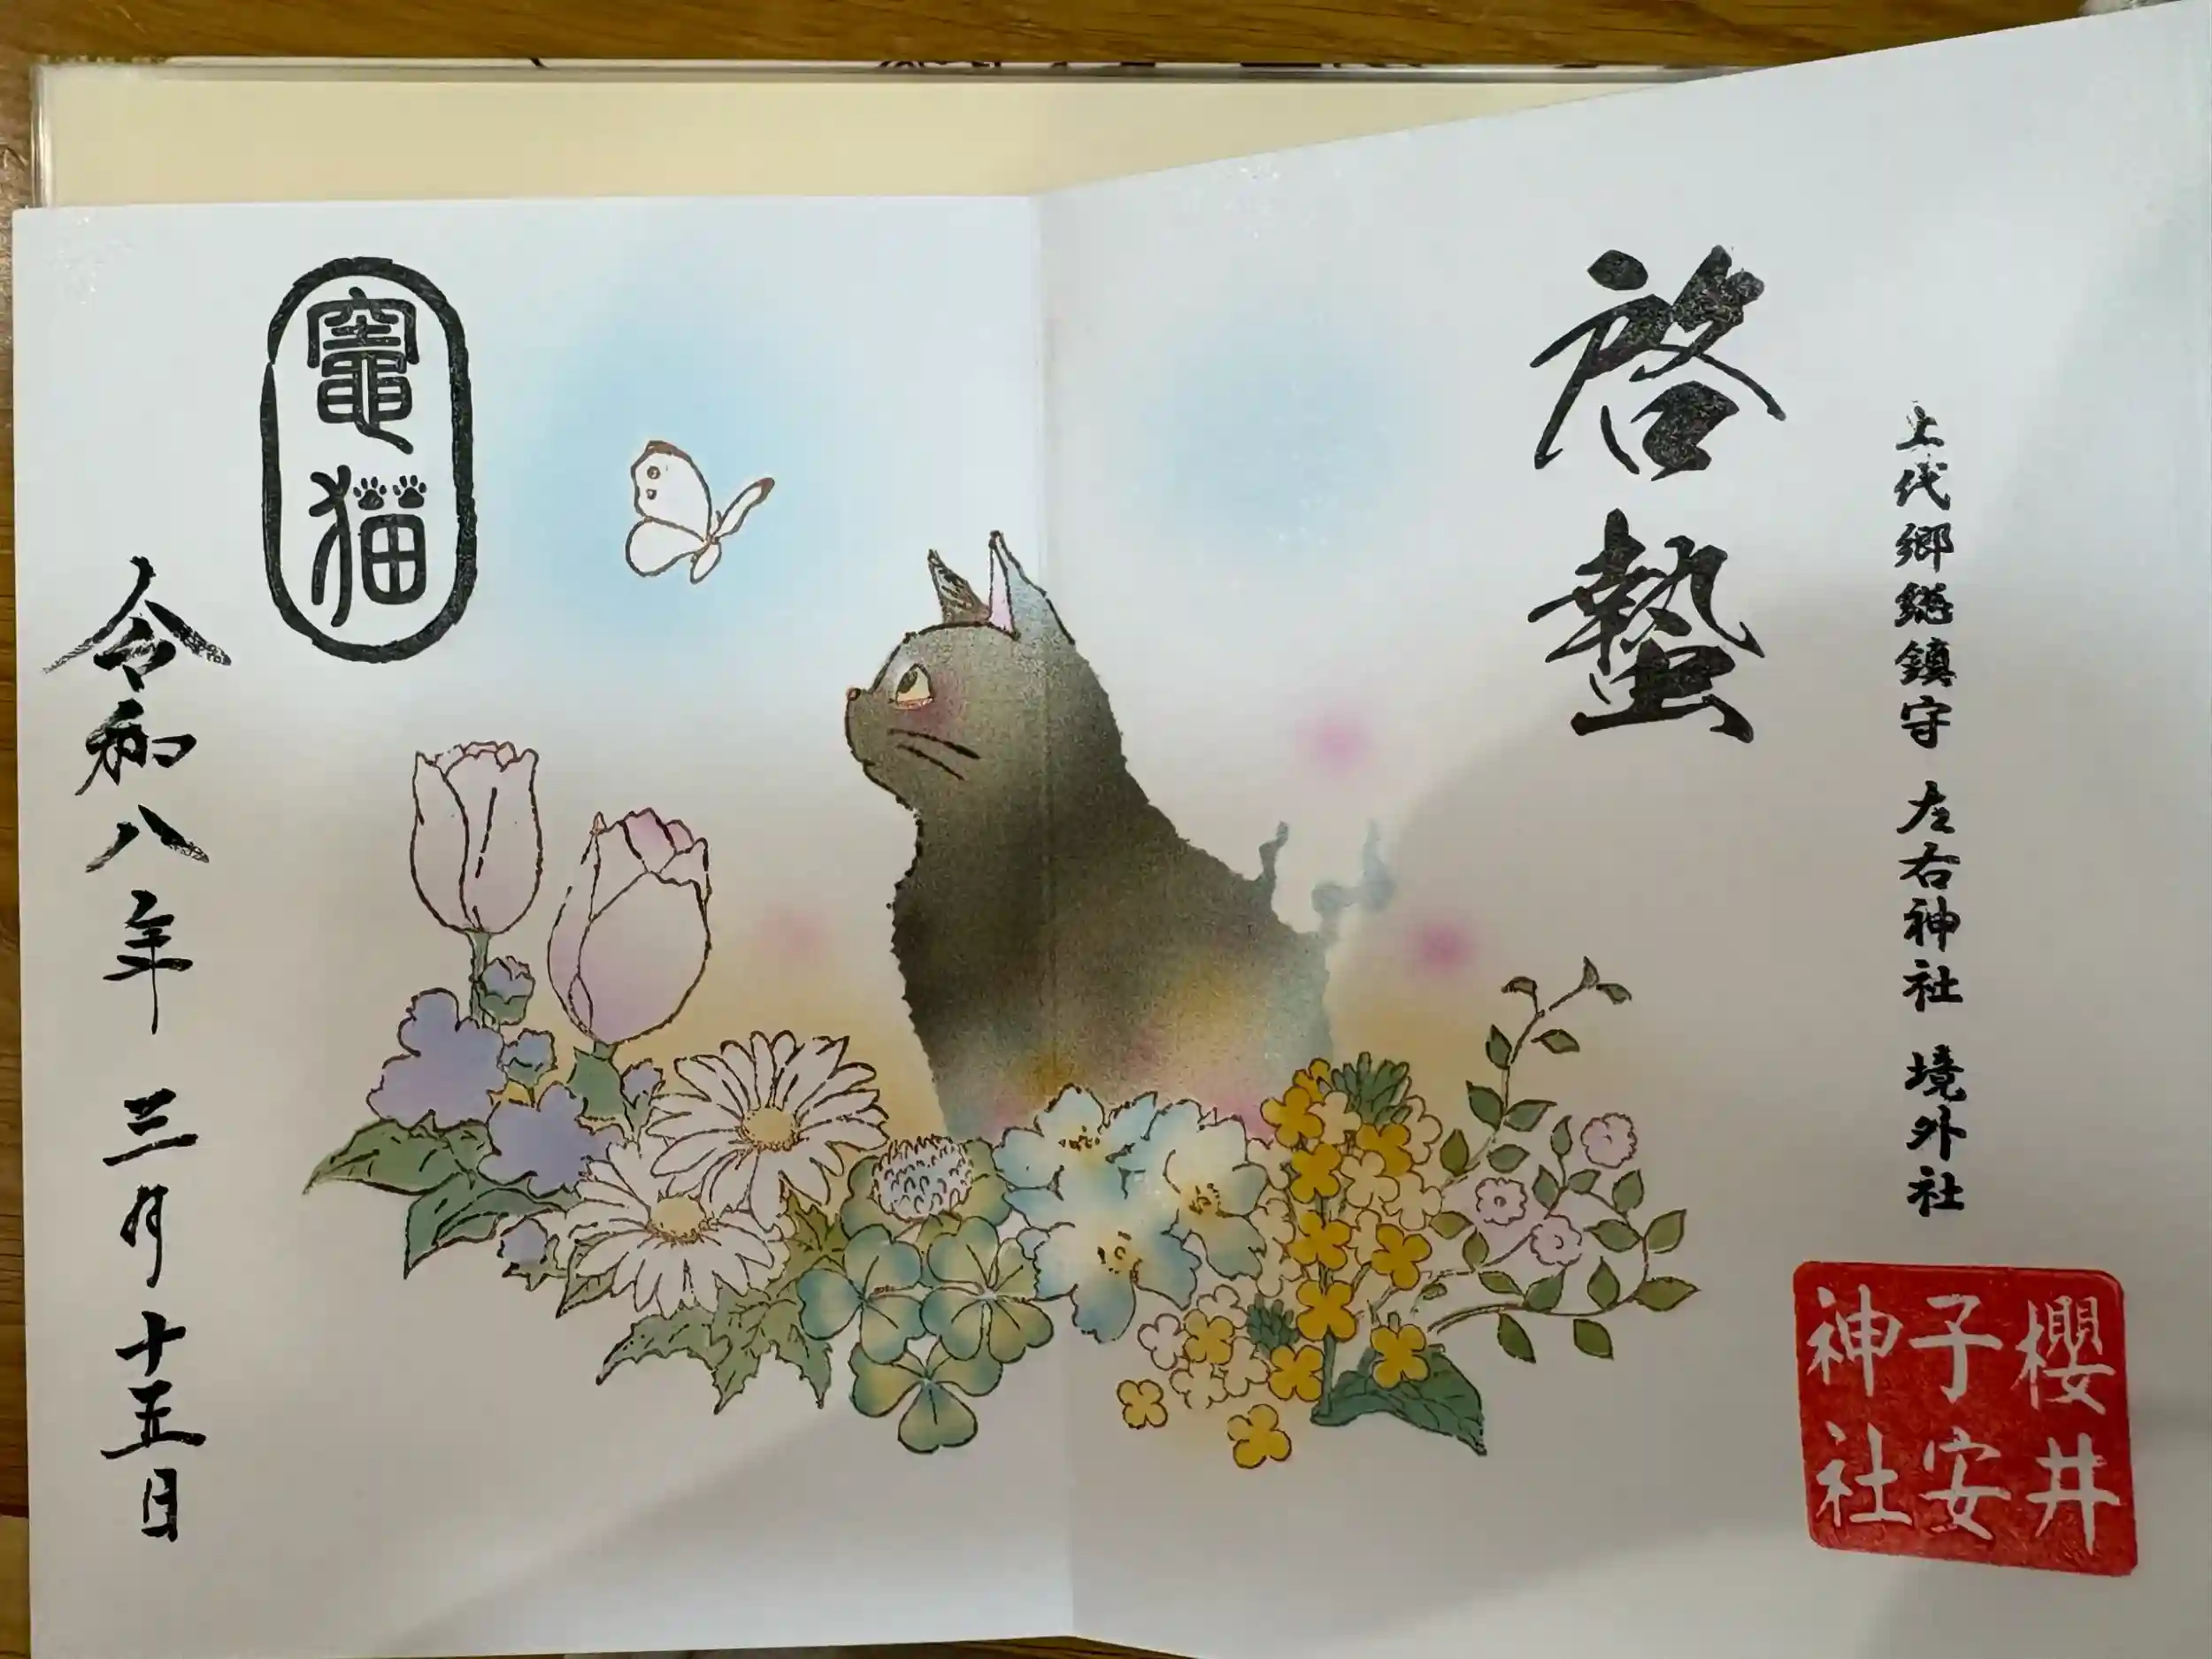 啓蟄
上代郷総鎮守 左右神社 境外社
櫻井
子安
神社
竈猫
令和八年 三月十五日